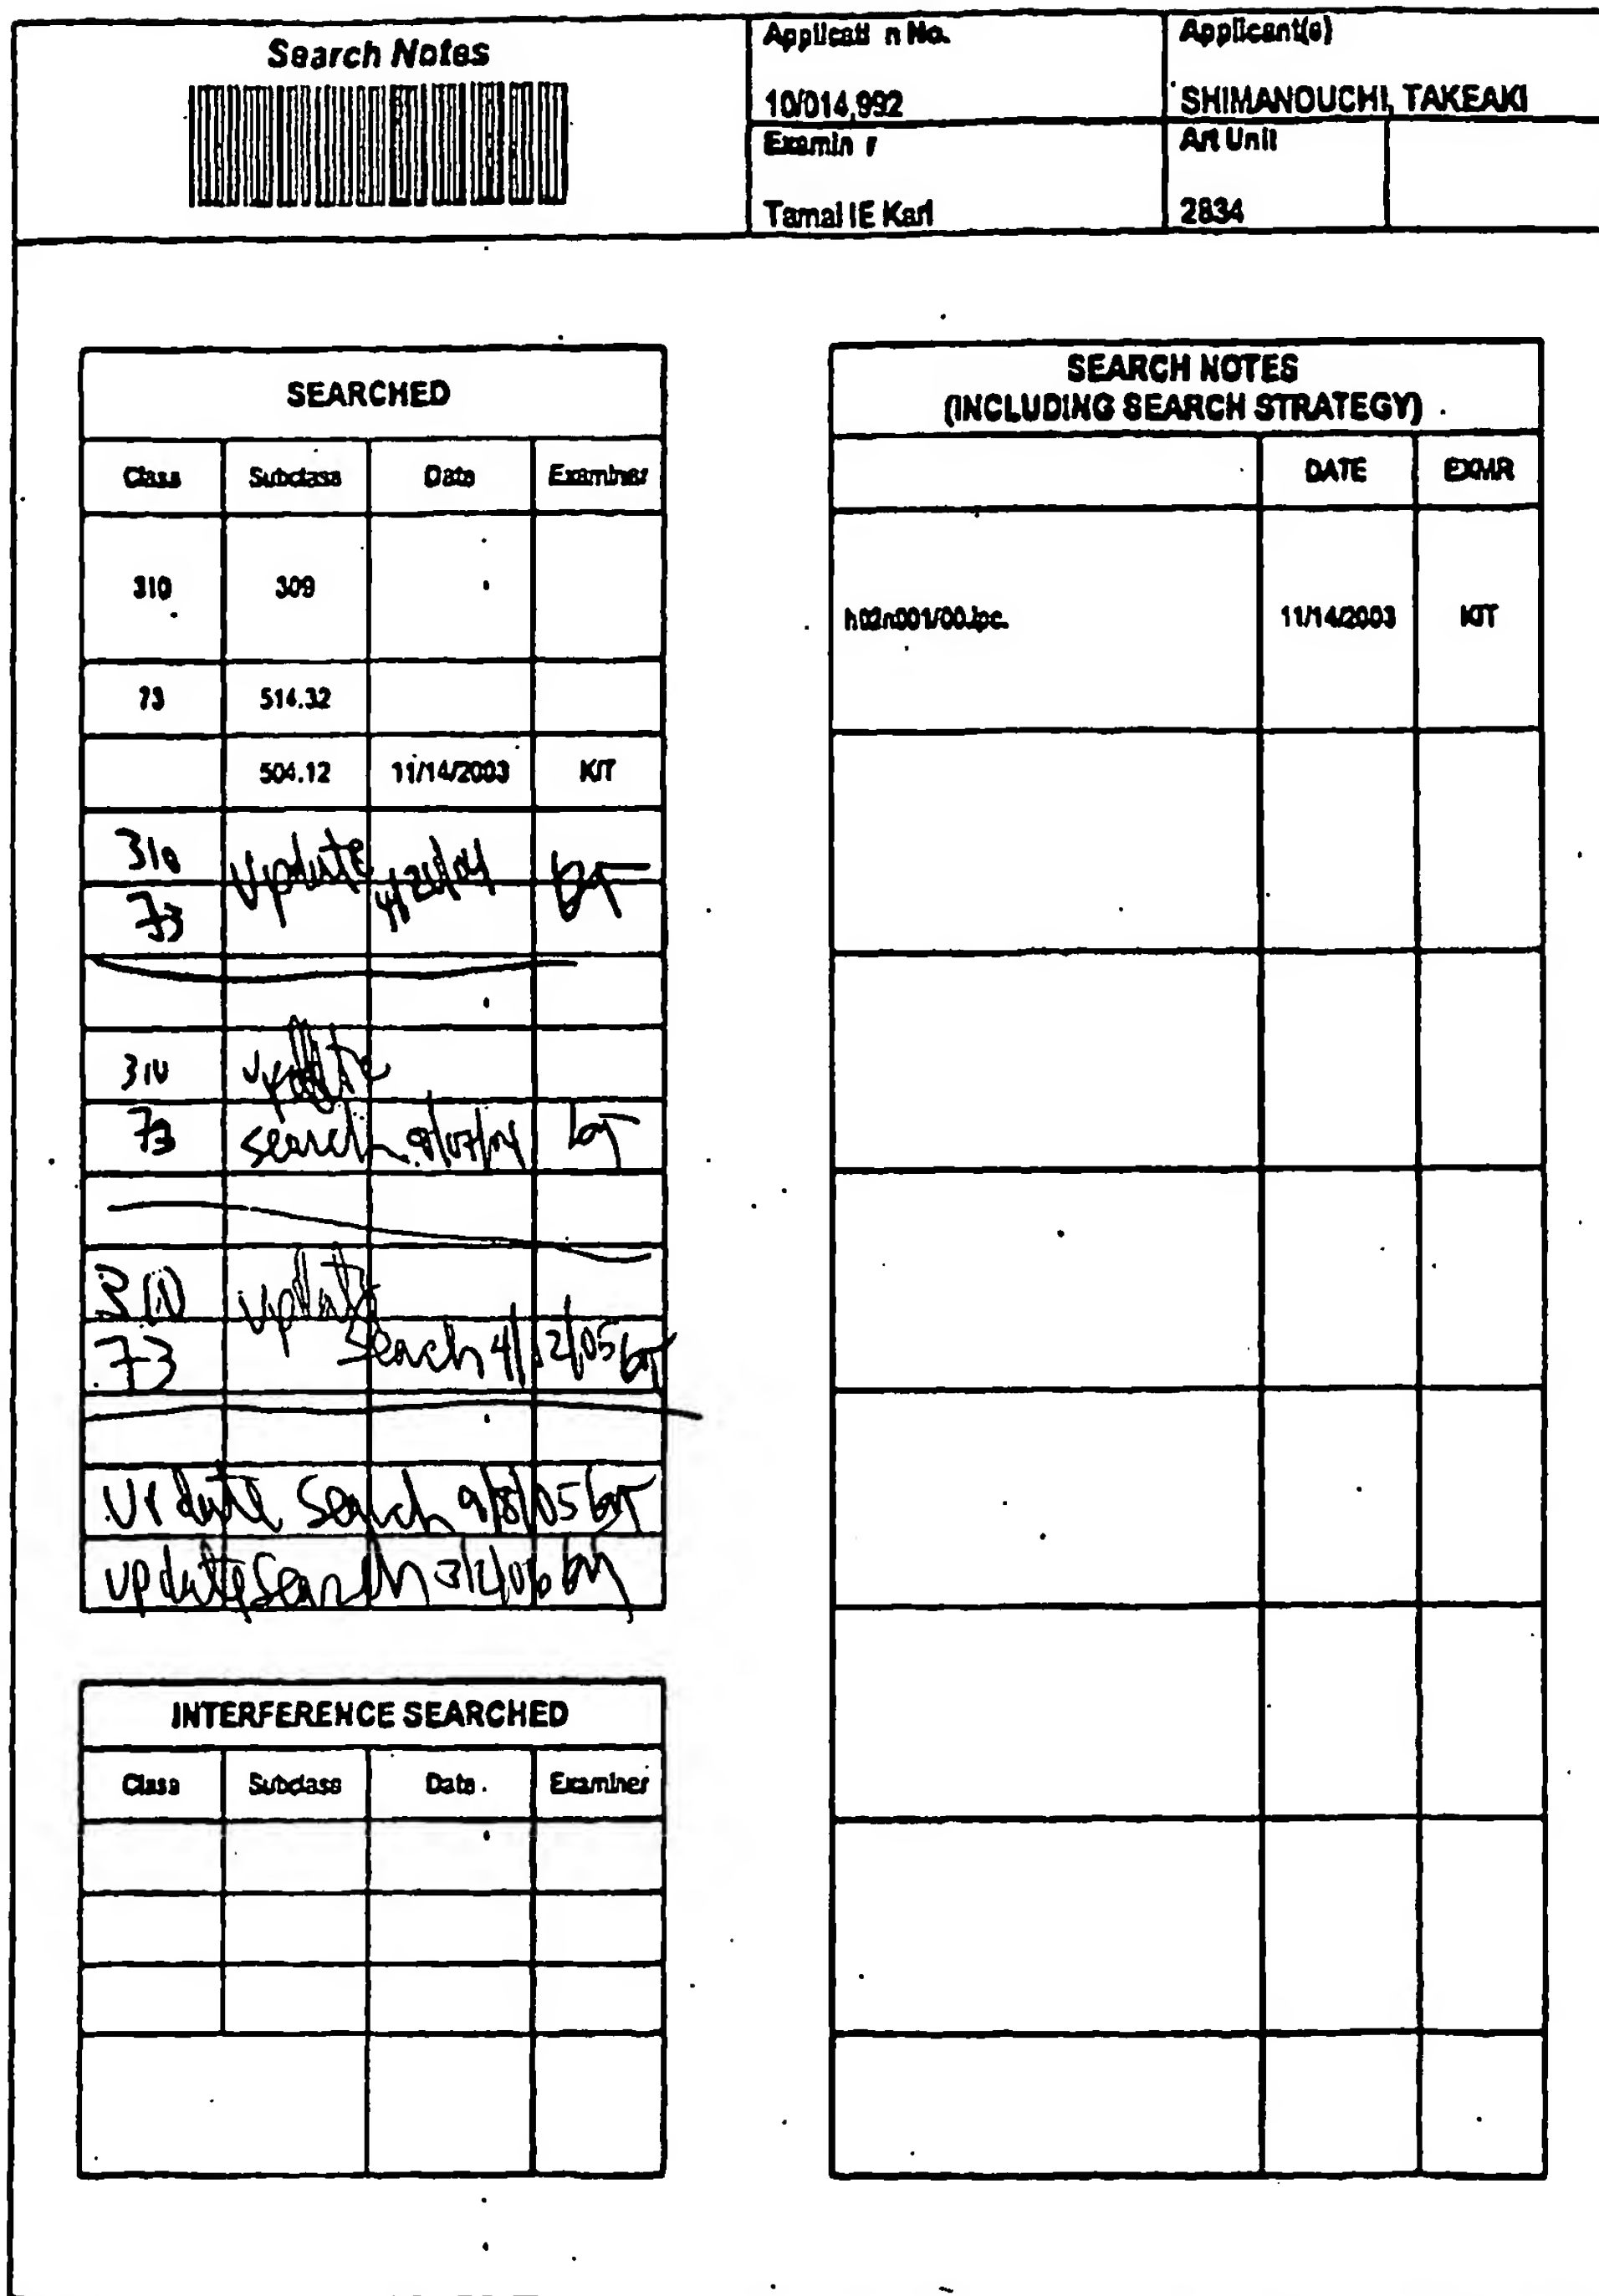 Search Notes
Applicati n No.
10/014,992
Applicant(s)
SHIMANOUCHI, TAKEAKI
Examin r
Tamai IE Karl
Art Unit
2834
SEARCHED
Class Subclass Date Examiner
310 309
73 514.32
504.12 11/14/2003 KIT
310 update
73
310 update
73 search
310 update
73 search 4/12/05
update search 9/8/05
update search 3/2/06
INTERFERENCE SEARCHED
Class Subclass Date Examiner
SEARCH NOTES
(INCLUDING SEARCH STRATEGY)
DATE EXMR
h02n001/00.ipc. 11/14/2003 KIT